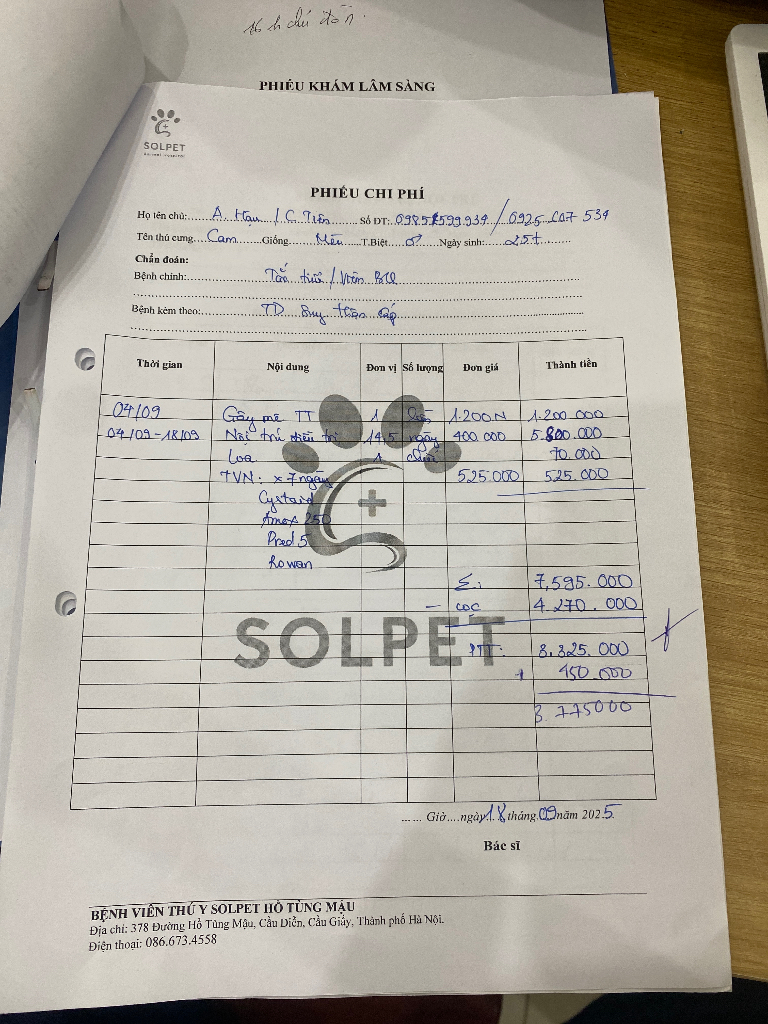 PHIẾU KHÁM LÂM SÀNG
SOLPET
PHIẾU CHI PHÍ
Họ tên chủ: A. Hạu / C. Tiên Số ĐT: / 0925 607 539
Tên thú cưng Cam Giống Mèo T.Biệt ♂ Ngày sinh: 25t
Chẩn đoán:
Bệnh chính: Tắc tiểu / Viêm BQ
Bệnh kèm theo: TD Suy thận cấp
Thời gian Nội dung Đơn vị Số lượng Đơn giá Thành tiền
04/09 Gây mê TT 1 lần 1.200N 1.200.000
04/09-18/09 Nội trú điều trị 14,5 ngày 400.000 5.800.000
Loa 1 chiếc 70.000
TVN: x 7 ngày 525.000 525.000
Cystaid
Amox 250
Pred 5
Rowan
Σ: 7,595.000
- cọc 4.270.000
SOLPET
PTT: 3.325.000
+ 450.000
3.775000
...... Giờ....ngày 18 tháng 09 năm 2025
Bác sĩ
BỆNH VIỆN THÚ Y SOLPET HỒ TÙNG MẬU
Địa chỉ: 378 Đường Hồ Tùng Mậu, Cầu Diễn, Cầu Giấy, Thành phố Hà Nội.
Điện thoại: 086.673.4558